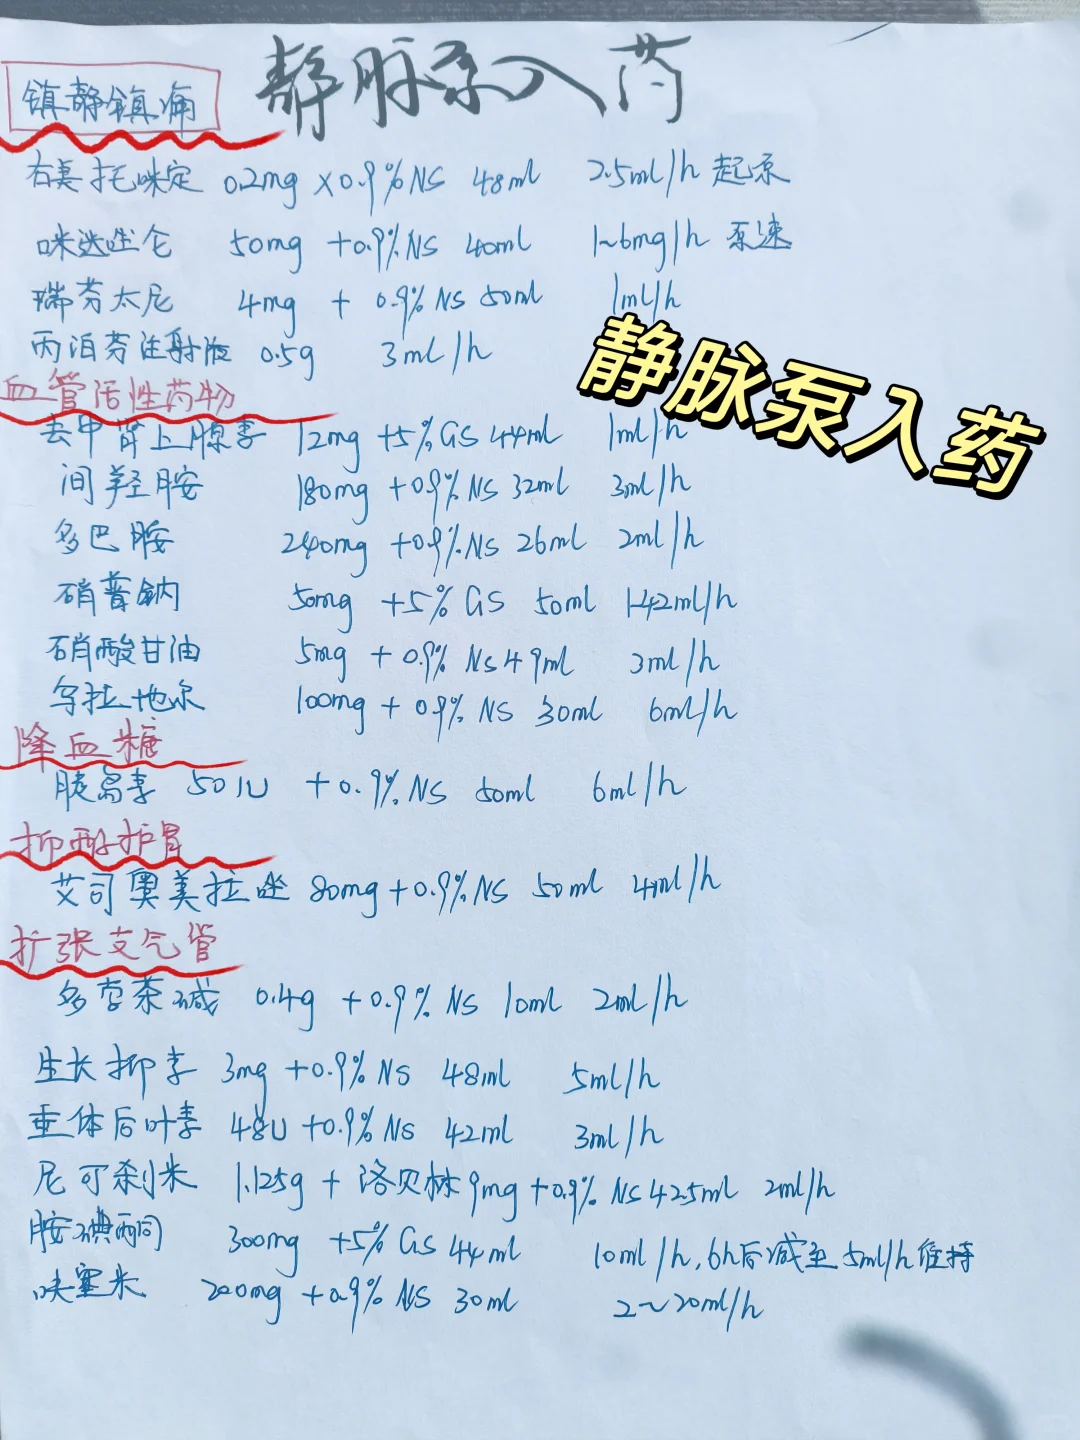 静脉泵入药
镇静镇痛
右美托咪定 0.2mg x0.9%NS 48ml 2.5ml/h 起泵
咪达唑仑 50mg +0.9%NS 40ml 1~6mg/h 泵速
瑞芬太尼 4mg + 0.9% NS 50ml 1ml/h
丙泊芬注射液 0.5g 3ml/h
静脉泵入药
血管活性药物
去甲肾上腺素 12mg +5%GS 44ml 1ml/h
间羟胺 180mg +0.9%NS 32ml 3ml/h
多巴胺 240mg +0.9%NS 26ml 2ml/h
硝普钠 50mg +5% GS 50ml 1-42ml/h
硝酸甘油 5mg + 0.9% NS 49ml 3ml/h
乌拉地尔 100mg + 0.9% NS 30ml 6ml/h
降血糖
胰岛素 50IU +0.9%NS 50ml 6ml/h
抑酸护胃
艾司奥美拉唑 80mg+0.9%NS 50ml 4ml/h
扩张支气管
多索茶碱 0.4g +0.9% NS 10ml 2ml/h
生长抑素 3mg +0.9% NS 48ml 5ml/h
垂体后叶素 48U +0.9% NS 42ml 3ml/h
尼可刹米 1.125g + 洛贝林 9mg +0.9% NS 42.5ml 2ml/h
胺碘酮 300mg +5% GS 44ml 10ml/h,6h后减至5ml/h维持
呋塞米 200mg +0.9% NS 30ml 2~20ml/h